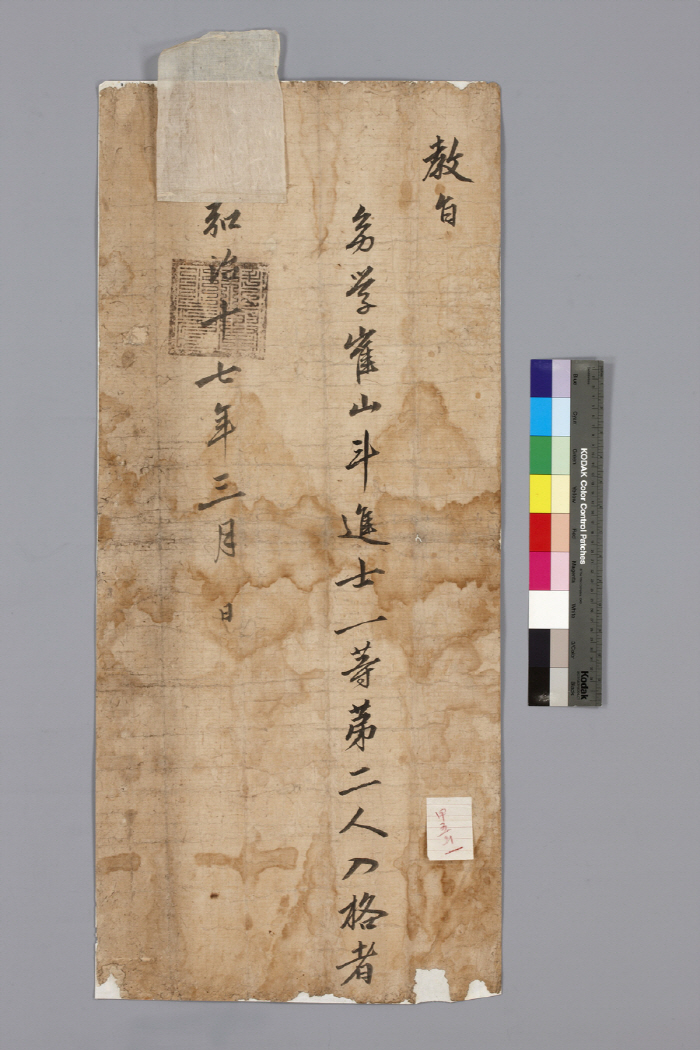 教旨
幼学崔山斗進士一等第二人入格者
弘治十七年三月 日
甲
KODAK Color Control Patches
Blue
Cyan
Green
Yellow
Red
Magenta
White
3/Color
Black
Kodak